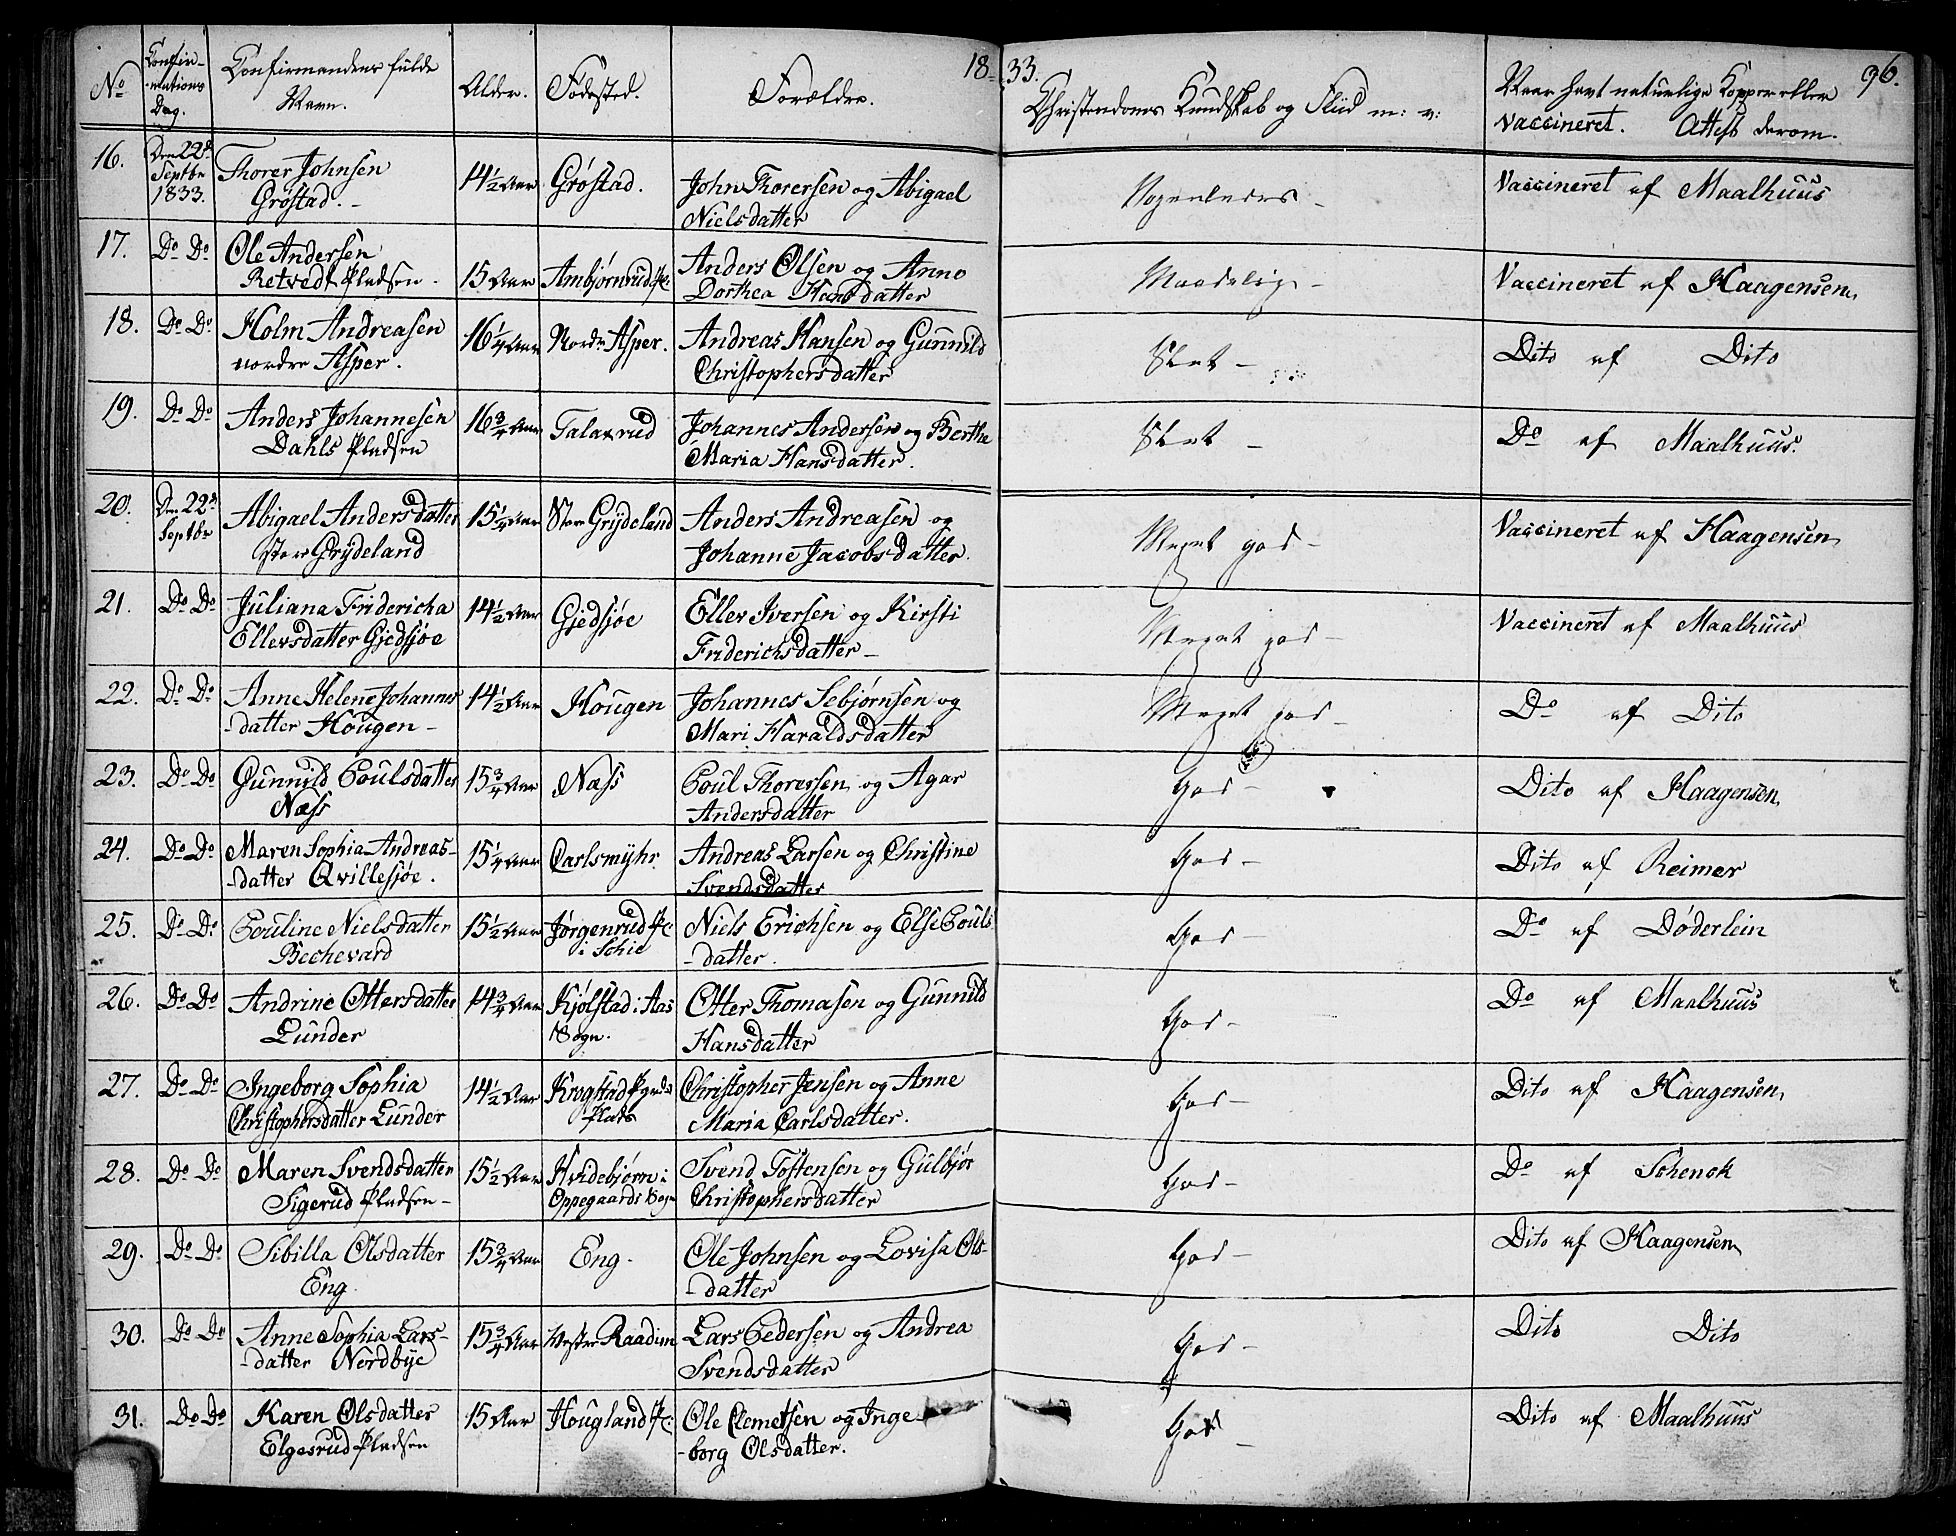 18 33. 96.
No Confirmations Dag. Confirmandens fulde Navn. Alder. Födested. Forældre. Christendoms Kundskab og Fliid m: v: Naar havt naturlige Kopper eller vaccineret. Attest derom.
16. Den 22de Septbr 1833. Thorer Johnsen 14 1/2 Aar Grøstad. John Thorersen og Abigael Vaccineret af Maalhuus
Grøstad. Nielsdatter
17. Do Do Ole Andersen 15 Aar Ambjørnrud Pl: Anders Olsen og Anne Maadelig Vaccineret af Haagensen
Retvedt Pladsen Dorthea Hansdatter
18. Do Do Holm Andreasen 16 1/4 Aar Nordre Asper. Andreas Hansen og Gunnild Slet Dito af Dito
nordre Asper. Christophersdatter
19. Do Do Anders Johannesen 16 3/4 Aar Talaxrud Johannes Andersen og Berthe Slet Do af Maalhuus.
Dahls Pladsen Maria Hansdatter.
20. Den 22de Septbr Abigael Andersdatter 15 1/4 Aar Store Grydeland Anders Andreasen og Meget god Vaccineret af Haagensen
store Grydeland Johanne Jacobsdatter.
21. Do Do Juliana Fridericha 14 1/2 Aar Gjedsjøe Ellev Iversen og Kirsti Meget god Vaccineret af Maalhuus
Ellevsdatter Gjedsjøe Friderichsdatter
22. Do Do Anne Helene Johannes 14 1/2 Aar Hougen Johannes Sebjørnsen og Meget god Do af Dito
-datter Hougen Mari Haraldsdatter
23. Do Do Gunnild Poulsdatter 15 3/4 Aar Næss Poul Thorersen og Agar God Dito af Haagensen
Næss Andersdatter
24. Do Do Maren Sophia Andreas- 15 1/4 Aar Carlsmyhr. Andreas Larsen og Christine God Dito af Reimer
-datter Qvillesjøe. Svendsdatter
25. Do Do Pouline Nielsdatter 15 1/2 Aar Jørgenrud Pl: Niels Erichsen og Else Pouls God Do af Døderlein
Bechevard i Schie -datter.
26. Do Do Andrine Ottersdatter 14 3/4 Aar Kjølstad i Aas Otter Thomasen og Gunnild God Do af Maalhuus
Lunder Sogn. Hansdatter
27. Do Do Ingeborg Sophia 14 1/2 Aar Krogstad Christopher Jensen og Anne God Dito af Haagensen
Christophersdatter Lunder Plads Maria Carlsdatter.
28. Do Do Maren Svendsdatter 15 1/2 Aar Hvidebjørn i Svend Tostensen og Gulbjør God Do af Schenck
Sigerud Pladsen Oppegaards Sogn Christophersdatter
29. Do Do Sibilla Olsdatter 15 3/4 Aar Eng. Ole Johnsen og Lovisa Ols- God Dito af Haagensen
Eng. -datter
30. Do Do Anne Sophia Lars- 15 3/4 Aar Vestre Raadim Lars Pedersen og Andrea God Dito Dito
-datter Nordbye Svendsdatter
31. Do Do Karen Olsdatter 15 Aar Hougland Pl: Ole Clemetsen og Inge- God Dito af Maalhuus
Elgesrud Pladsen -borg Olsdatter.